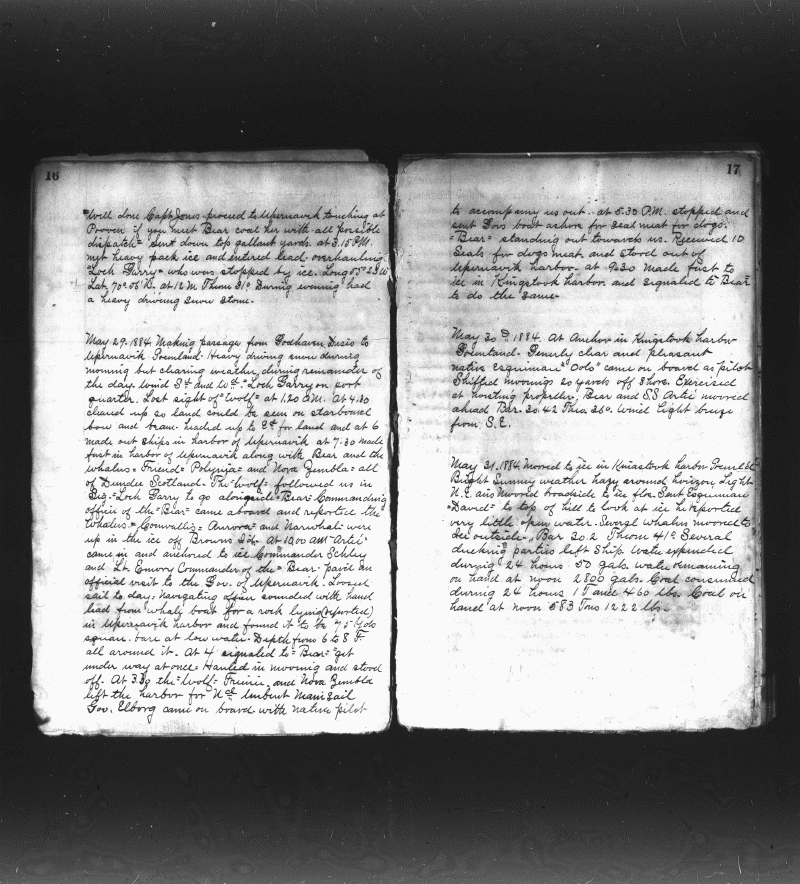 16
"Well done Capt Jones proceed to Upernavik touching at
Proven if you meet Bear coal her with all possible
dispatch" Sent down top gallant yards. at 3.15 P.M.
met heavy pack ice and entered lead overhauling
"Loch Garry" who was stopped by ice. Long 55°
Lat. 70° 06' N. at 12 M Therm 31° During evening had
a heavy driving snow storm.
May 29. 1884. Making passage from Godhaven Disco to
Upernavik Greenland. Heavy driving snow during
morning but clearing weather during remainder of
the day. Wind Sd and Wd. "Loch Garry on port
quarter. Lost sight of "Wolf" at 1.20 A.M. At 4.30
cleared up so land could be seen on starboard
bow and beam. headed up to Ed for land and at 6
made out ships in harbor of Upernavik at 7.30 made
fast in harbor of Upernavik along with Bear and the
whalers = Triend = Polynia = and Nova Zembla = all
of Dundee Scotland. The "Wolf" followed us in
Sig. "Loch Garry to go alongside "Bear" Commanding
officer of the "Bear" came aboard and reported the
whalers = Cornwallis = Aurora = and Narwhal were
up in the ice off Browns Isd. At 10.00 AM "Artic"
came in and anchored to ice Commander Schley
and Lt. Emory Commander of the "Bear" paid an
official visit to the Gov. of Upernavik. Loosed
sail to day. Navigating officer sounded with hand
lead from whale boat for a rock lying (reported)
in Upernavik harbor and found it to be 75 Yds
square. bare at low water. Depth from 6 to 8 F.
all around it. At 4 signaled to "Bear" "get
under way at once" Hauled in mooring and stood
off. At 3.30 the "Wolf" Triene, and Nova Zembla
left the harbor for Nd. Unbent Main Sail
Gov. Elborg came on board with native pilot
17
to accompany us out. at 5.30 P.M. stopped and
sent Govs boat ashore for seal meat for dogs.
"Bear" standing out towards us. Received 10
Seals for dogs meat and stood out of
Upernavik harbor at 9.30 made fast to
ice in Kingstook harbor and signaled to "Bear"
to do the same.
May 30th. 1884. At Anchor in Kingstook harbor
Greenland. Generly clear and pleasant
native Esquimau "Oole" came on board as pilot
Shifted moorings 20 yards off shore. Exercised
at hoisting propeller, Bear and SS Artic moored
ahead Bar. 30.42 Ther. 36°. Wind light breeze
from S.E.
May 31. 1884. Moored to ice in Kinastook harbor
Bright Sunny weather hazy around horizon. Light
N.E. airs Moored broadside to ice floe. Sent Esquimau
"David" to top of hill to look at ice he reported
very little open water. Severl whalers moored to
Ice outside. Bar 30.2 Therm 41° Several
ducking parties left ship. Water expended
durying 24 hours 50 gals. water remaining
on hand at noon 2800 gals. Coal consumed
during 24 hours 1 T and 460 lbs. Coal on
hand at noon 583 Tons 1222 lbs.